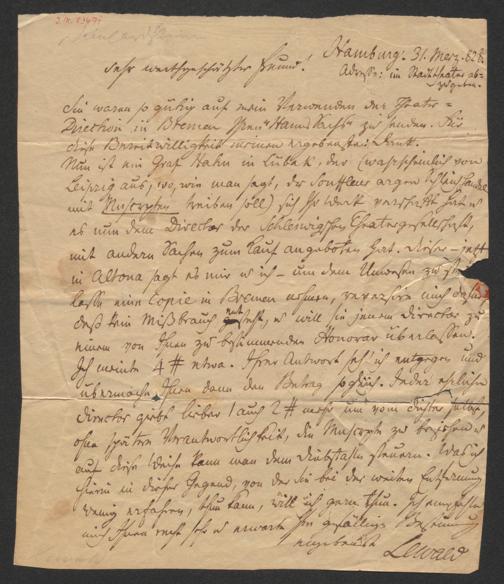 Hamburg. 31. Merz. 828.
Adresse: im Stadttheater ab-
zugeben.
Sehr werthgeschätzter Freund!
Sie waren so gütig auf mein Verwenden der Theater-
Direction in Bremen Ihren "Hans Sachs" zu senden. Für
diese Bereitwilligkeit meinen ergebensten Dank.
Nun ist ein Graf Hahn in Lübek, der (wahrscheinlich von
Leipzig aus, wo, wie man sagt, der Souffleur argen Schleichhandel
mit Muscripten treiben soll) sich Ihr Werk verschafft hat u
es nun dem Director der Schleswigschen Theatergesellschaft,
mit andern Sachen zum Kauf angeboten hat. Dieser - jetzt
in Altona sagt es mir u ich - um dem Unwesen zu
lasse eine Copie in Bremen nehmen,
daß kein Mißbrauch entsteht, u will sie jenem Director zu
einem von Ihnen zu bestimmenden Honorar überlassen.
Ich meinte 4 # etwa. Ihrer Antwort seh' ich entgegen und
übermache Ihnen dann den Betrag sogleich. Jeder ehrliche
Director giebt lieber 1 auch 2 # mehr um vom Dichter selbst,
ohne spätere Verantwortlichkeit, die Muscripte zu beziehen u
auf diese Weise kann man dem Diebstahl steuern. Was ich
hierin in dieser Gegend, von der Sie bei der weiten Entfernung
wenig erfahren, thun kann, will ich gern thun. Ich empfehle
mich Ihnen recht sehr u erwarte Ihre gefällige Bestimmung
ergebenst
Lewald